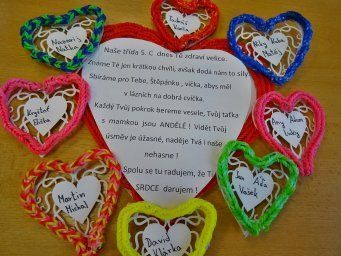 Naše třída 5. C dnes Tě zdraví velice.
Známe Tě jen krátkou chvíli, avšak dodá nám to síly.
Sbíráme pro Tebe, Štěpánku, víčka, abys měl
v lázních na dobrá cvička.
Každý Tvůj pokrok bereme vesele, Tvůj taťka
s mamkou jsou ANDĚLÉ ! Vidět Tvůj
úsměv je úžasné, naděje Tvá i naše
nehasne !
Spolu se tu radujem, že Ti
SRDCE darujem !
Tadeáš
Vanda
Natka
Niky Kuba
Matěj
Kryštof
Běla
Any Adam
Luky
Martin
Michal
Jan Áďa
Vašek
David
Klárka